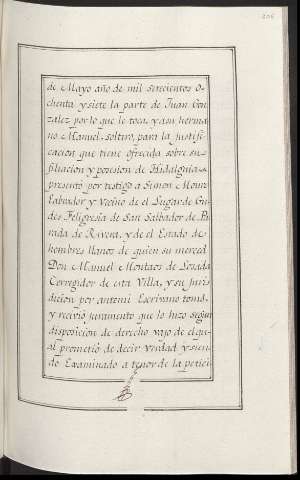 206
de Mayo año de mil setecientos o-
chenta y siete la parte de Juan Gon-
zalez por lo que le toca, y a su herma-
no Manuel, soltero, para la justifi-
cacion que tiene ofrecida sobre su
filiacion y posesion de Hidalguia,
presentó por testigo a Simon Moure
Labrador y Vecino de el Lugar de Gu-
des Feligresia de San Salbador de Pa-
rada de Rivera, y de el Estado de
hombres llanos de quien su merced
Don Manuel Montaos de Losada
Corregidor de esta Villa, y su Juris-
dicion por antemi Escrivano tomó,
y recivió juramento que lo hizo segun
disposicion de derecho vajo de el qu-
al prometió de decir verdad y sien-
do Examinado a tenor de la petici